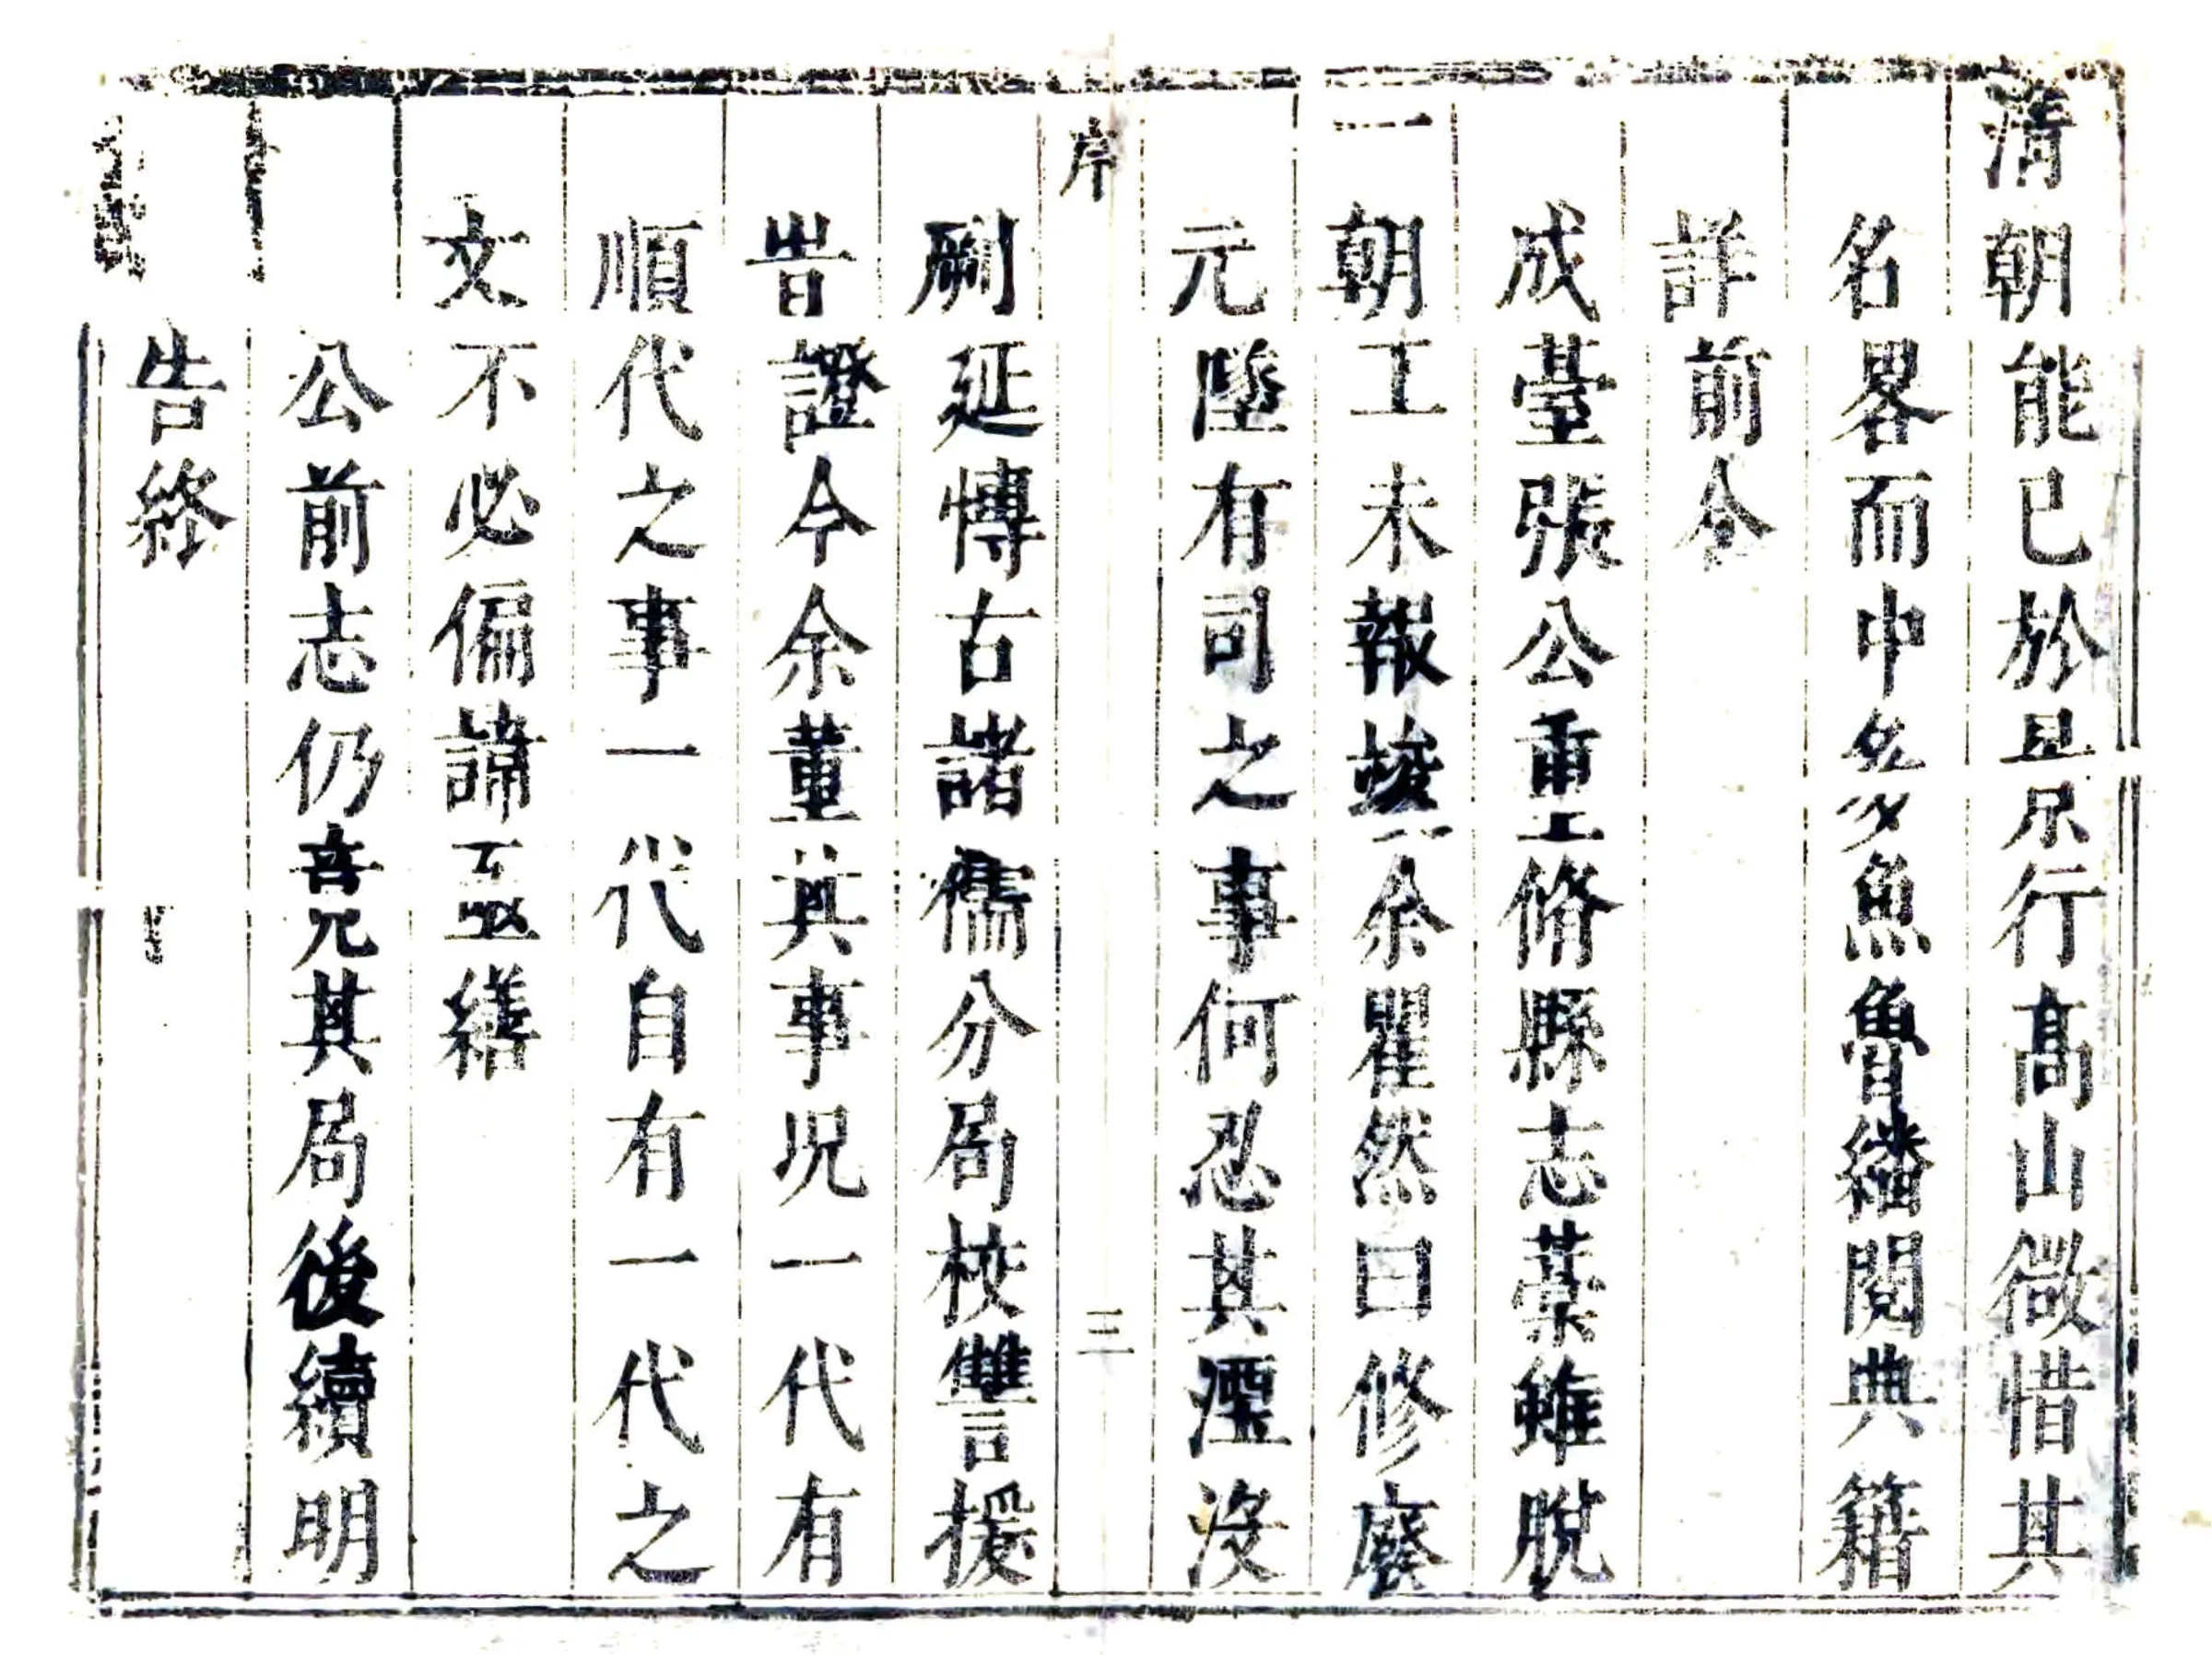 清朝能已於景行高山微惜其
名畧而中多魚魯繙閱典籍
詳前令
成臺張公重脩縣志藁雖脫
一朝工未報竣余瞿然曰修廢
元墜有司之事何忍其湮沒
序
三
爰延博古諸儒分局校讐援
昔證今余董其事況一代有
順代之事一代自有一代之
文不必偏諱亟繕
公前志仍其局後續明
告終